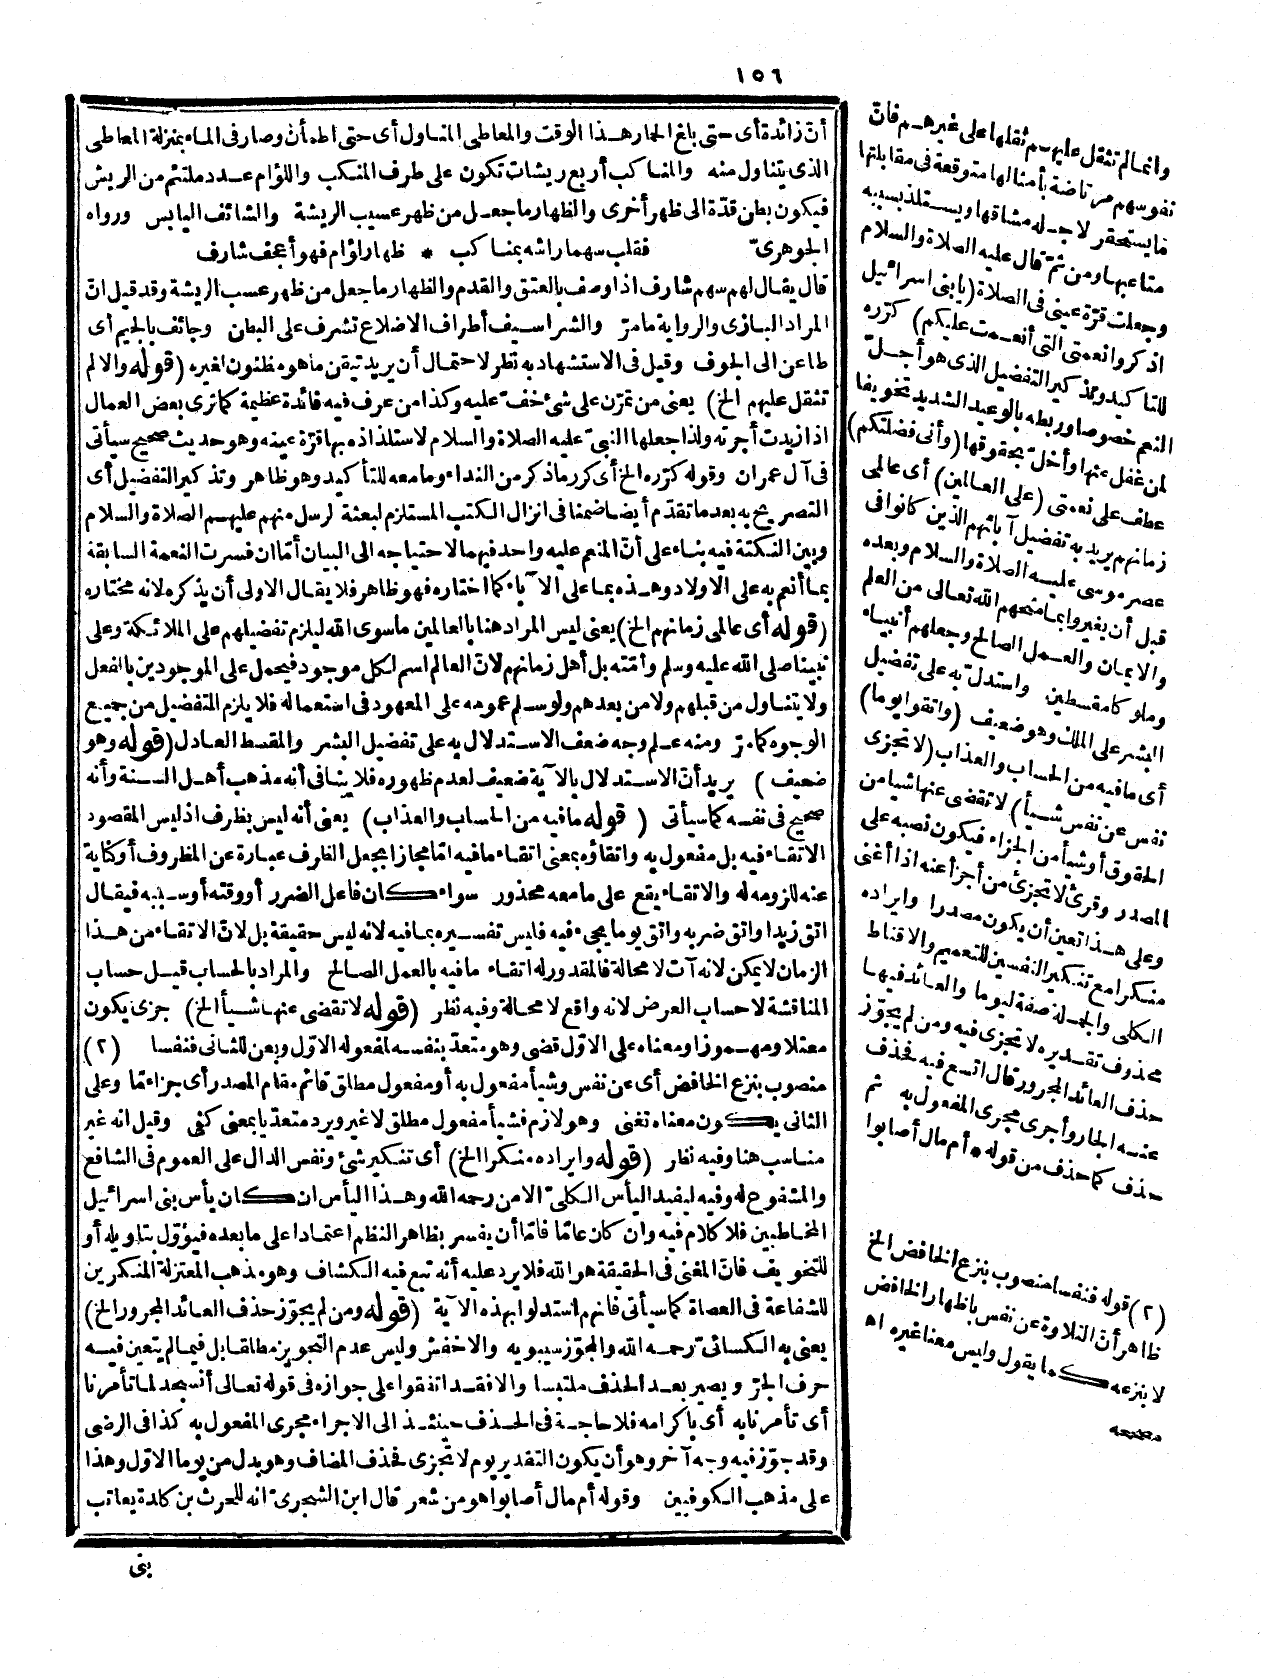 ١٥٦
أنّ زائدة أى حتى بلغ الحمار هذا الوقت والمعاطى المتناول أى حتى اطمأن وصار فى الماء بمنزلة المعاطى
الذى يتناول منه والمناكب أربع ريشات تكون على طرف المنكب واللؤام عدد ملتئم من الريش
فيكون بطن قذة الى ظهر أخرى والظهار ما جعل من ظهر عسيب الريشة والشائف اليابس ورواه
الجوهرىّ فقلب سهما راشه بمناكب * ظهار لؤام فهو أعجف شارف
قال يقال لهم سهم شارف اذا وصف بالعتق والقدم والظهار ما جعل من ظهر عسب الريشة وقد قيل انّ
المراد البازى والرواية ما مرّ والشراسيف أطراف الاضلاع تشرف على البطن وجائف بالجيم أى
طاعن الى الجوف وقيل فى الاستشهاد به نظر لاحتمال أن يريد تيقن ما هو مظنون لغيره (قوله والا لم
تثقل عليهم الخ) يعنى من تمرّن على شئ خف عليه وكذا من عرف فيه فائدة عظيمة كما ترى بعض العمال
اذا زيدت أجرته ولذا جعلها النبىّ عليه الصلاة والسلام لاستلذاذه بها قرّة عينه وهو حديث صحيح سيأتى
فى آل عمران وقوله كرّره الخ أى كرر ما ذكر من النداء وما معه للتأكيد وهو ظاهر وتذكير التفضيل أى
التصريح به بعد ما تقدّم أيضا ضمنا فى انزال الكتب المستلزم لبعثة لرسل منهم عليهم الصلاة والسلام
وبين النكتة فيه بناء على أنّ المنعم عليه واحد فيهما لاحتياجه الى البيان أمّا ان فسرت النعمة السابقة
بما أنعم به على الاولاد وهذه بما على الآباء كما اختاره فهو ظاهر فلا يقال الاولى أن يذكره لانه مختاره
(قوله أى عالمى زمانهم الخ) يعنى ليس المراد هنا بالعالمين ما سوى الله ليلزم تفضيلهم على الملائكة وعلى
نبينا صلى الله عليه وسلم وأمّته بل أهل زمانهم لانّ العالم اسم لكل موجود فيحمل على الموجودين بالفعل
ولا يتناول من قبلهم ولا من بعدهم ولو سلم عمومه على المعهود فى استعماله فلا يلزم التفضيل من جميع
الوجوه كما مرّ ومنه علم وجه ضعف الاستدلال به على تفضيل البشر والمقسط العادل (قوله وهو
ضعيف) يريد أنّ الاستدلال بالآية ضعيف لعدم ظهوره فلا ينافى أنه مذهب أهل السنة وأنه
صحيح فى نفسه كما سيأتى (قوله ما فيه من الحساب والعذاب) يعنى أنه ليس بظرف اذ ليس المقصود
الاتقاء فيه بل مفعول به واتقاؤه بمعنى اتقاء ما فيه امّا مجازا بجعل الظرف عبارة عن المظروف أو كناية
عنه للزومه له والاتقاء يقع على ما معه محذور سواء كان فاعل الضرر أو وقته أو سببه فيقال
اتق زيدا واتق ضربه واتق يوما يجىء فيه فليس تفسيره بما فيه لانه ليس حقيقة بل لانّ الاتقاء من هذا
الزمان لا يمكن لانه آت لا محالة فالمقدور له اتقاء ما فيه بالعمل الصالح والمراد بالحساب قيل حساب
المناقشة لا حساب العرض لانه واقع لا محالة وفيه نظر (قوله لا تقضى عنها شيأ الخ) جزى يكون
معتلا ومهموزا ومعناه على الاوّل قضى وهو متعدّ بنفسه لمفعوله الاوّل وبعن للثانى فنفسا (٢)
منصوب بنزع الخافض أى عن نفس وشيأ مفعول به أو مفعول مطلق قائم مقام المصدر أى جزاء مّا وعلى
الثانى يكون معناه تغنى وهو لازم فشيأ مفعول مطلق لا غير ويرد متعدّيا بمعنى كفى وقيل انه غير
مناسب هنا وفيه نظر (قوله وايراده منكرا الخ) أى تنكير شئ ونفس الدال على العموم فى الشافع
والمشفوع له وفيه ليفيد اليأس الكلىّ الا من رحمه الله وهذا اليأس ان كان يأس بنى اسرائيل
المخاطبين فلا كلام فيه وان كان عامّا فامّا أن يفسر بظاهر النظم اعتمادا على ما بعده فيؤوّل بتاويله أو
للتخويف فانّ المغنى فى الحقيقة هو الله فلا يرد عليه أنه تبع فيه الكشاف وهو مذهب المعتزلة المنكرين
للشفاعة فى العصاة كما سيأتى فانهم استدلوا بهذه الآية (قوله ومن لم يجوّز حذف العائد المجرور الخ)
يعنى به الكسائىّ رحمه الله والمجوّز سيبويه والاخفش وليس عدم التجويز مطلقا بل فيما لم يتعين فيه
حرف الجرّ ويصير بعد الحذف ملتبسا والا فقد اتفقوا على جوازه فى قوله تعالى أنسجد لما تأمرنا
أى تأمرنا به أى باكرامه فلا حاجة فى الحذف حينئذ الى الاجراء مجرى المفعول به كذا فى الرضى
وقد جوّز فيه وجه آخر وهو أن يكون التقدير يوم لا تجزى فحذف المضاف وهو بدل من يوما الاوّل وهذا
على مذهب الكوفيين وقوله أم مال أصابوا هو من شعر قال ابن الشجرىّ انه للحرث بن كلدة يعاتب
بنى
وانما لم تثقل عليهم ثقلها على غيرهم فانّ
نفوسهم مرتاضة بأمثالها متوقعة فى مقابلتها
ما يستحقر لاجله مشاقها ويستلذ بسببه
متاعبها ومن ثمّ قال عليه الصلاة والسلام
وجعلت قرّة عينى فى الصلاة (يا بنى اسرائيل
اذكروا نعمتى التى أنعمت عليكم) كرّره
للتاكيد وتذكير التفضيل الذى هو أجلّ
النعم خصوصا وربطه بالوعيد الشديد تخويفا
لمن غفل عنها وأخلّ بحقوقها (وأنى فضلتكم)
عطف على نعمتى (على العالمين) أى عالمى
زمانهم يريد به تفضيل آبائهم الذين كانوا فى
عصر موسى عليه الصلاة والسلام وبعده
قبل أن يغيروا بما منحهم الله تعالى من العلم
والايمان والعمل الصالح وجعلهم أنبياء
وملوكا مقسطين واستدلّ به على تفضيل
البشر على الملك وهو ضعيف (واتقوا يوما)
أى ما فيه من الحساب والعذاب (لا تجزى
نفس عن نفس شيأ) لا تقضى عنها شيا من
الحقوق أو شيأ من الجزاء فيكون نصبه على
المصدر وقرئ لا تجزئ من أجزأ عنه اذا أغنى
وعلى هذا تعين أن يكون مصدرا وايراده
منكرا مع تنكير النفسين للتعميم والاقناط
الكلى والجملة صفة ليوما والعائد فيها
محذوف تقديره لا تجزى فيه ومن لم يجوّز
حذف العائد المجرور قال اتسع فيه فحذف
عنه الجار وأجرى مجرى المفعول به ثم
حذف كما حذف من قوله * أم مال أصابوا
(٢) قوله فنفسا منصوب بنزع الخافض الخ
ظاهر أنّ التلاوة عن نفس باظهار الخافض
لا بنزعه كما يقول وليس معنا غيره اه
مصححه